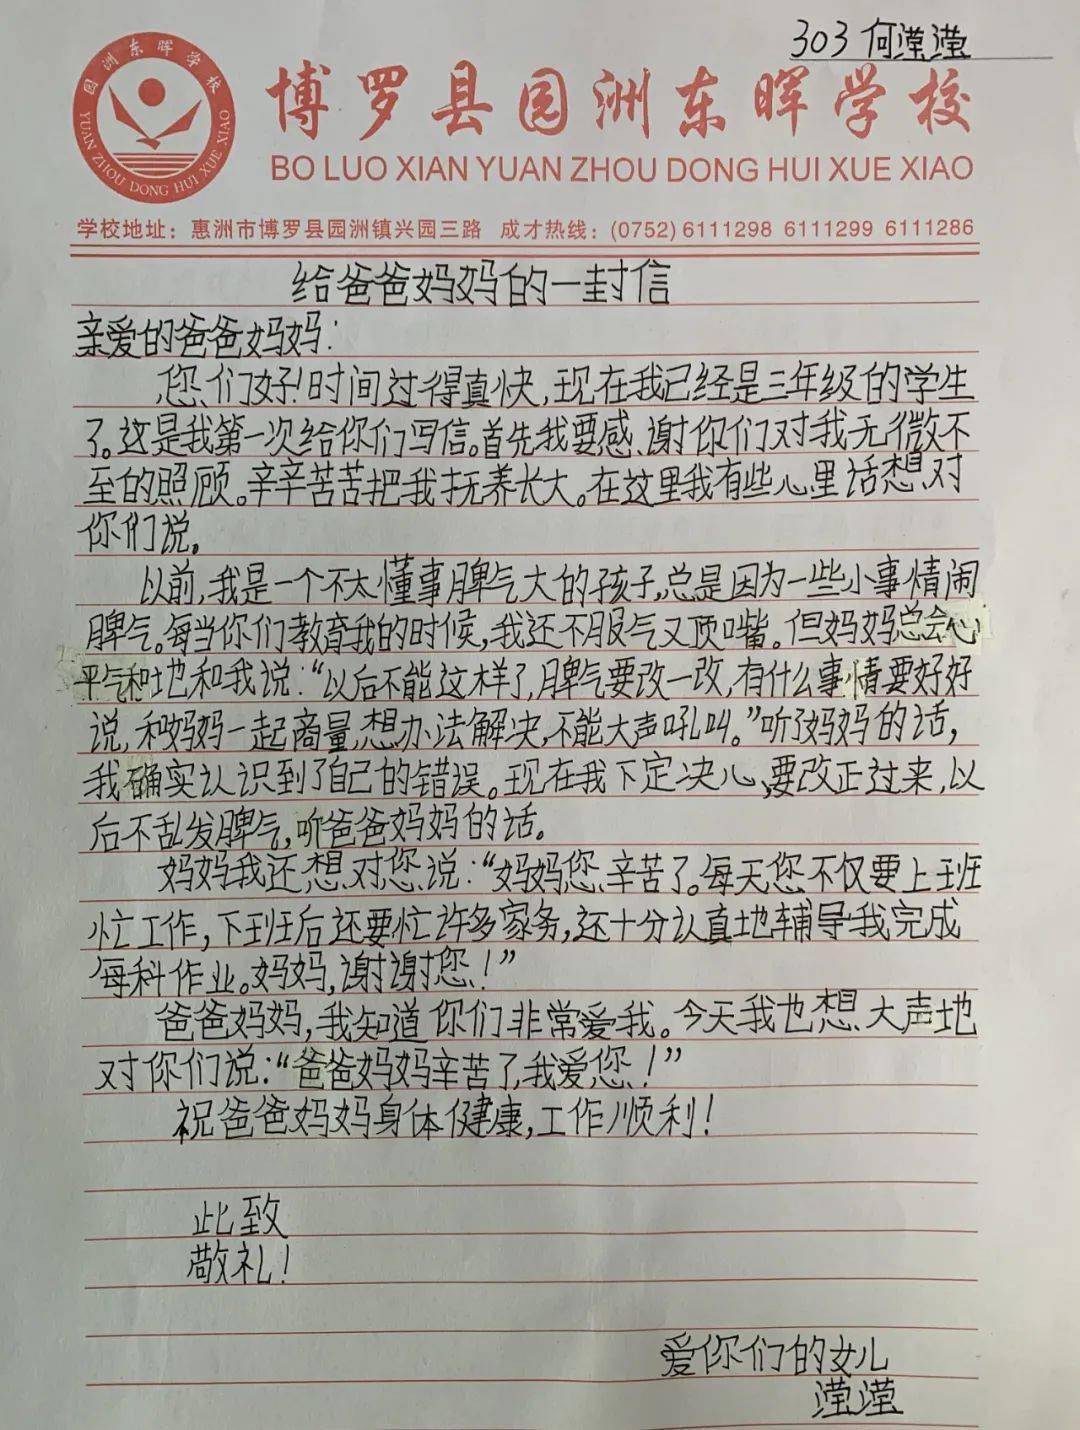 303 何滢滢
园洲东晖学校
YUAN ZHOU DONG HUI XUE XIAO
博罗县园洲东晖学校
BO LUO XIAN YUAN ZHOU DONG HUI XUE XIAO
学校地址：惠洲市博罗县园洲镇兴园三路 成才热线：(0752) 6111298 6111299 6111286
给爸爸妈妈的一封信
亲爱的爸爸妈妈：
您们好！时间过得真快，现在我已经是三年级的学生
了。这是我第一次给你们写信。首先我要感谢你们对我无微不
至的照顾。辛辛苦苦把我抚养长大。在这里我有些心里话想对
你们说。
以前，我是一个不太懂事脾气大的孩子，总是因为一些小事情闹
脾气。每当你们教育我的时候，我还不服气又顶嘴。但妈妈总会心
平气和地和我说：“以后不能这样了，脾气要改一改，有什么事情要好好
说，和妈妈一起商量，想办法解决，不能大声吼叫。”听了妈妈的话，
我确实认识到了自己的错误。现在我下定决心，要改正过来，以
后不乱发脾气，听爸爸妈妈的话。
妈妈我还想对您说：“妈妈您辛苦了。每天您不仅要上班
忙工作，下班后还要忙许多家务，还十分认真地辅导我完成
每科作业。妈妈，谢谢您！”
爸爸妈妈，我知道你们非常爱我。今天我也想大声地
对你们说：“爸爸妈妈辛苦了，我爱您！”
祝爸爸妈妈身体健康，工作顺利！
此致
敬礼！
爱你们的女儿
滢滢